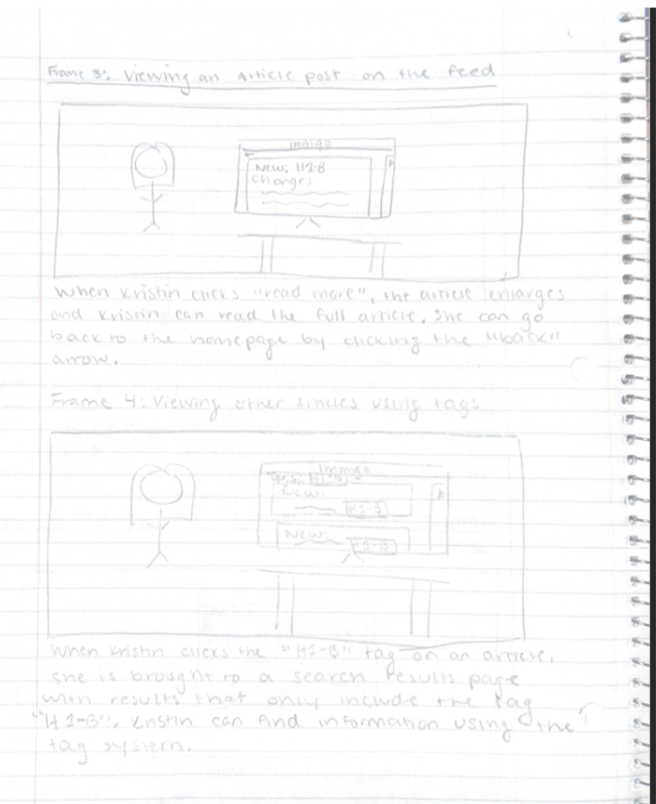 Frame 3: Viewing an Article post on the feed
immigo
New: H1-B
Changes
When Kristin clicks "read more", the article enlarges
and Kristin can read the full article. She can go
back to the homepage by clicking the "back"
arrow.
Frame 4: Viewing other Articles using tags
immigo
New:
H1-B
New:
H1-B
When Kristin clicks the "H1-B" tag on an article,
she is brought to a search results page
with results that only include the tag
"H1-B". Kristin can find information using the
tag system.